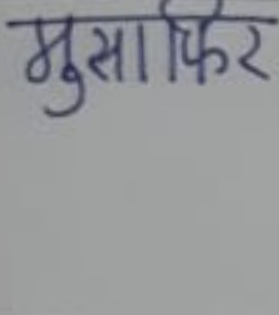 मुसाफिर